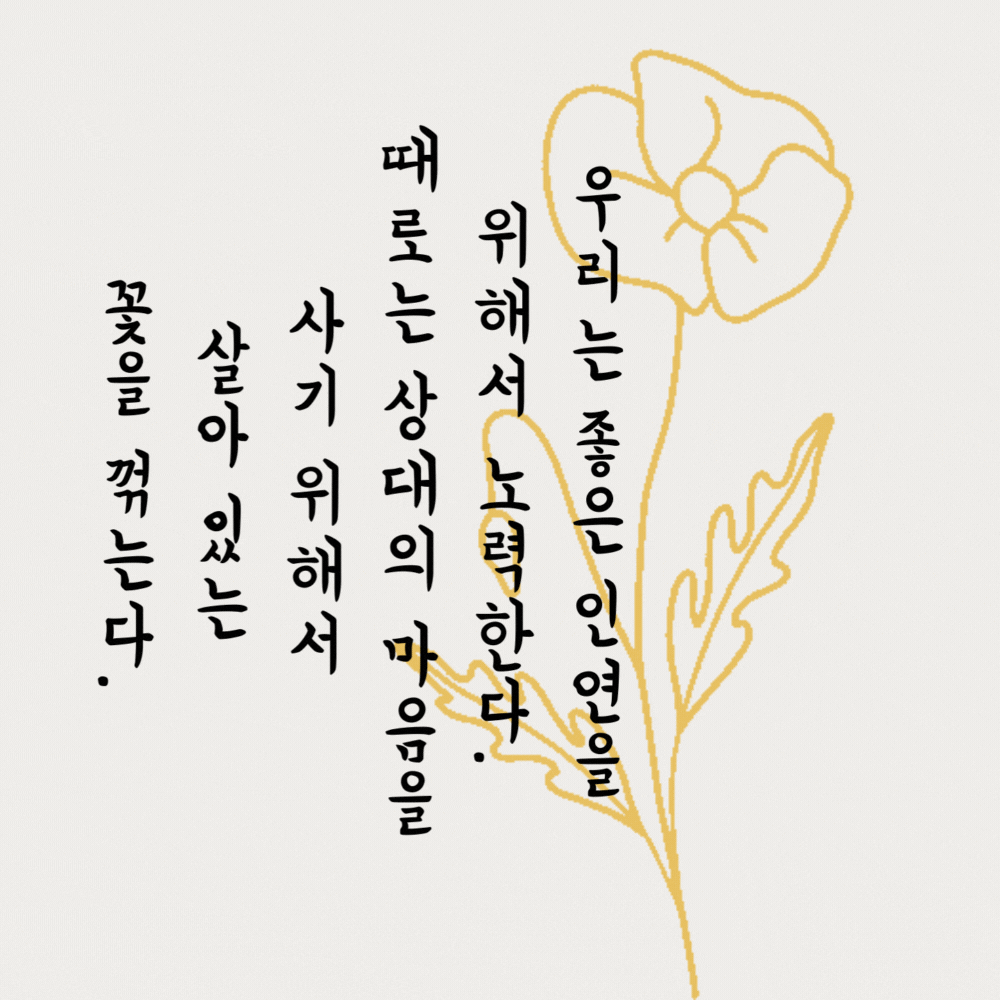 우리는 좋은 인연을
위해서 노력한다.
때로는 상대의 마음을
사기 위해서
살아 있는
꽃을 꺾는다.